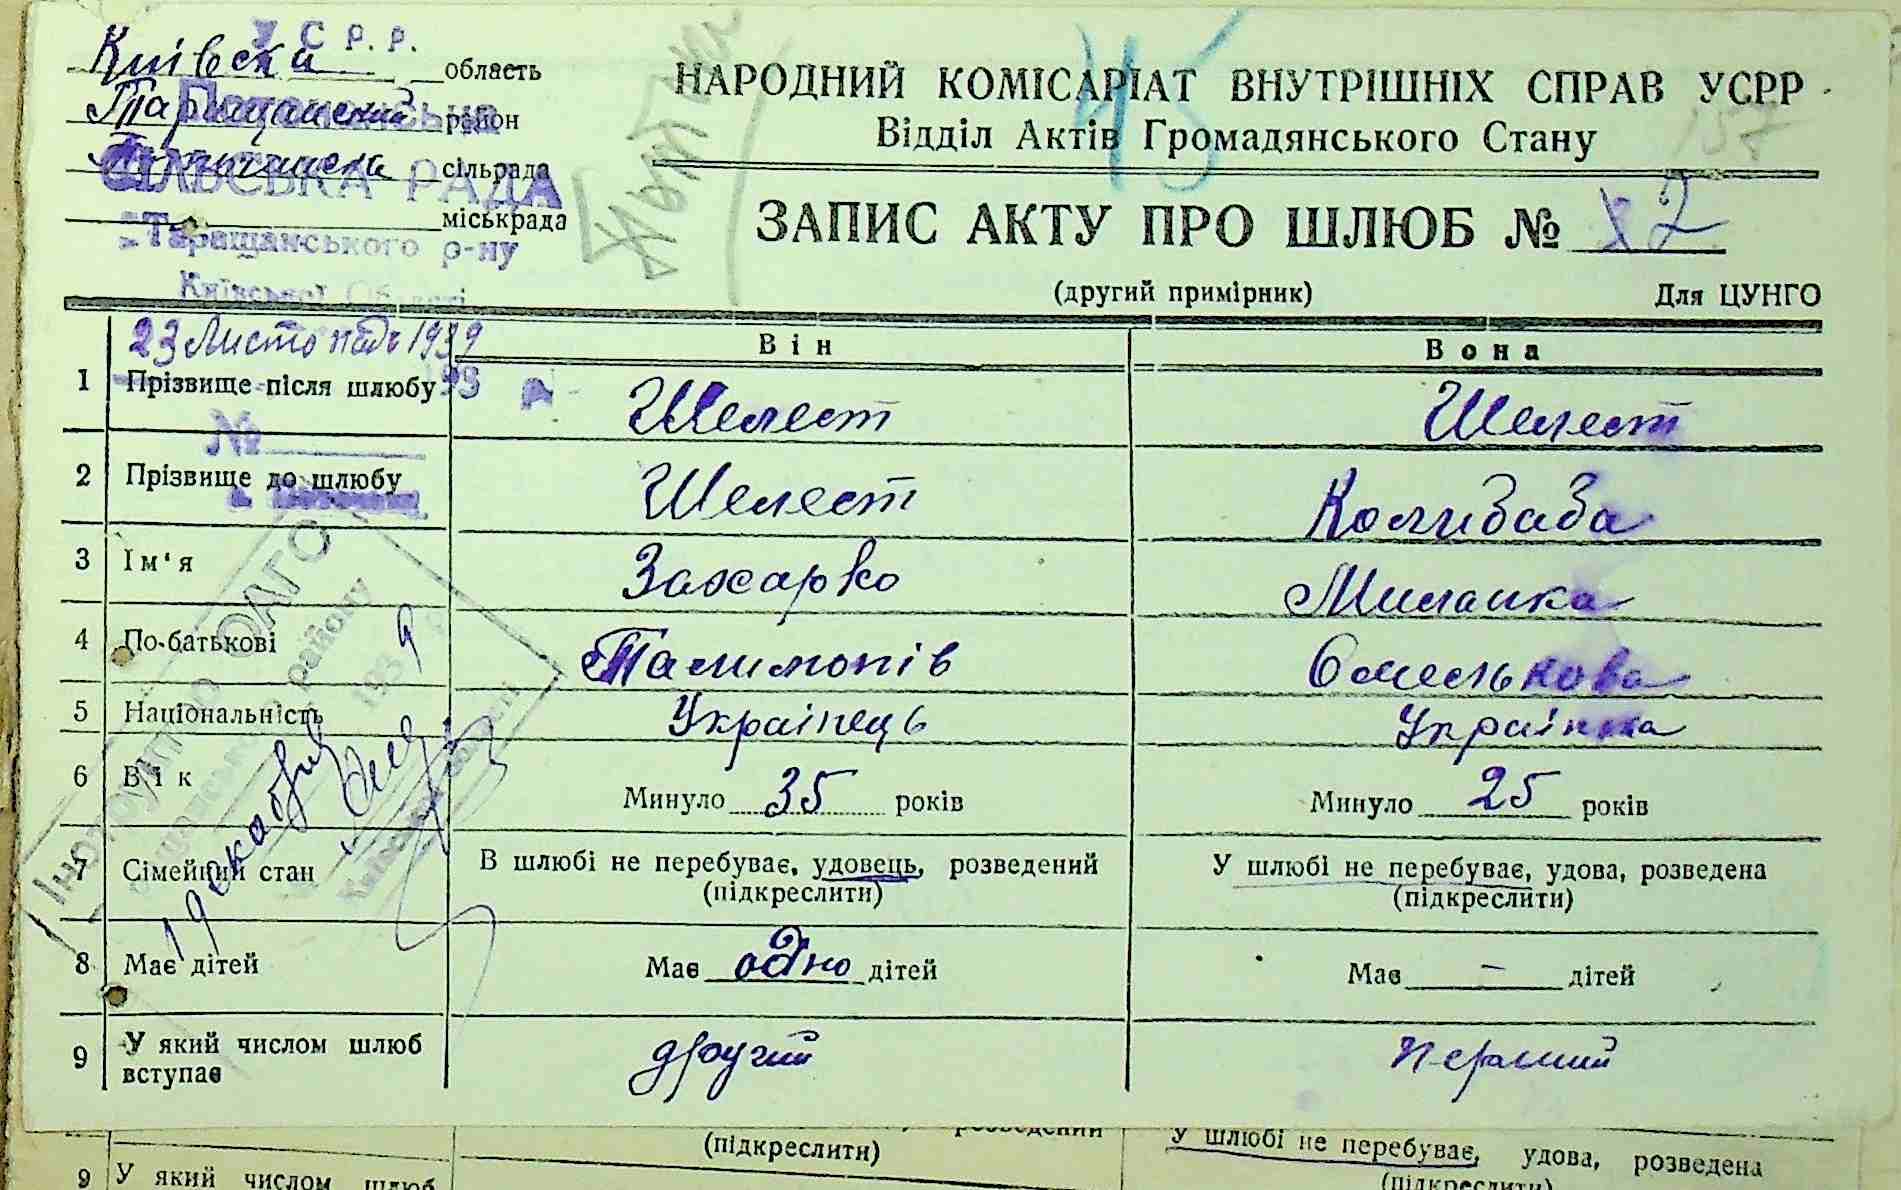 У С Р. Р.
Київська область
Таращанский район
сільрада
СІЛЬСЬКА РАДА
міськрада
Таращанського р-ну
Київської Області
НАРОДНИЙ КОМІСАРІАТ ВНУТРІШНІХ СПРАВ УСРР
Відділ Актів Громадянського Стану
45
157
ЗАПИС АКТУ ПРО ШЛЮБ № 2
(другий примірник) Для ЦУНГО
23 Листопадь 1939
Він Вона
1 Прізвище після шлюбу Шелест Шелест
№
2 Прізвище до шлюбу Шелест Колибаба
3 Ім'я Захарко Миланка
4 По-батькові Талимонів Омелькова
5 Національність Українець Українка
6 Вік Минуло 35 років Минуло 25 років
7 Сімейний стан В шлюбі не перебуває, удовець, розведений (підкреслити) У шлюбі не перебуває, удова, розведена (підкреслити)
8 Має дітей Має одно дітей Має — дітей
9 У який числом шлюб вступає другий перший
ОАГО
району
1939
розведений У шлюбі не перебуває, удова, розведена
(підкреслити) (підкреслити)
9 У який числом шлюб